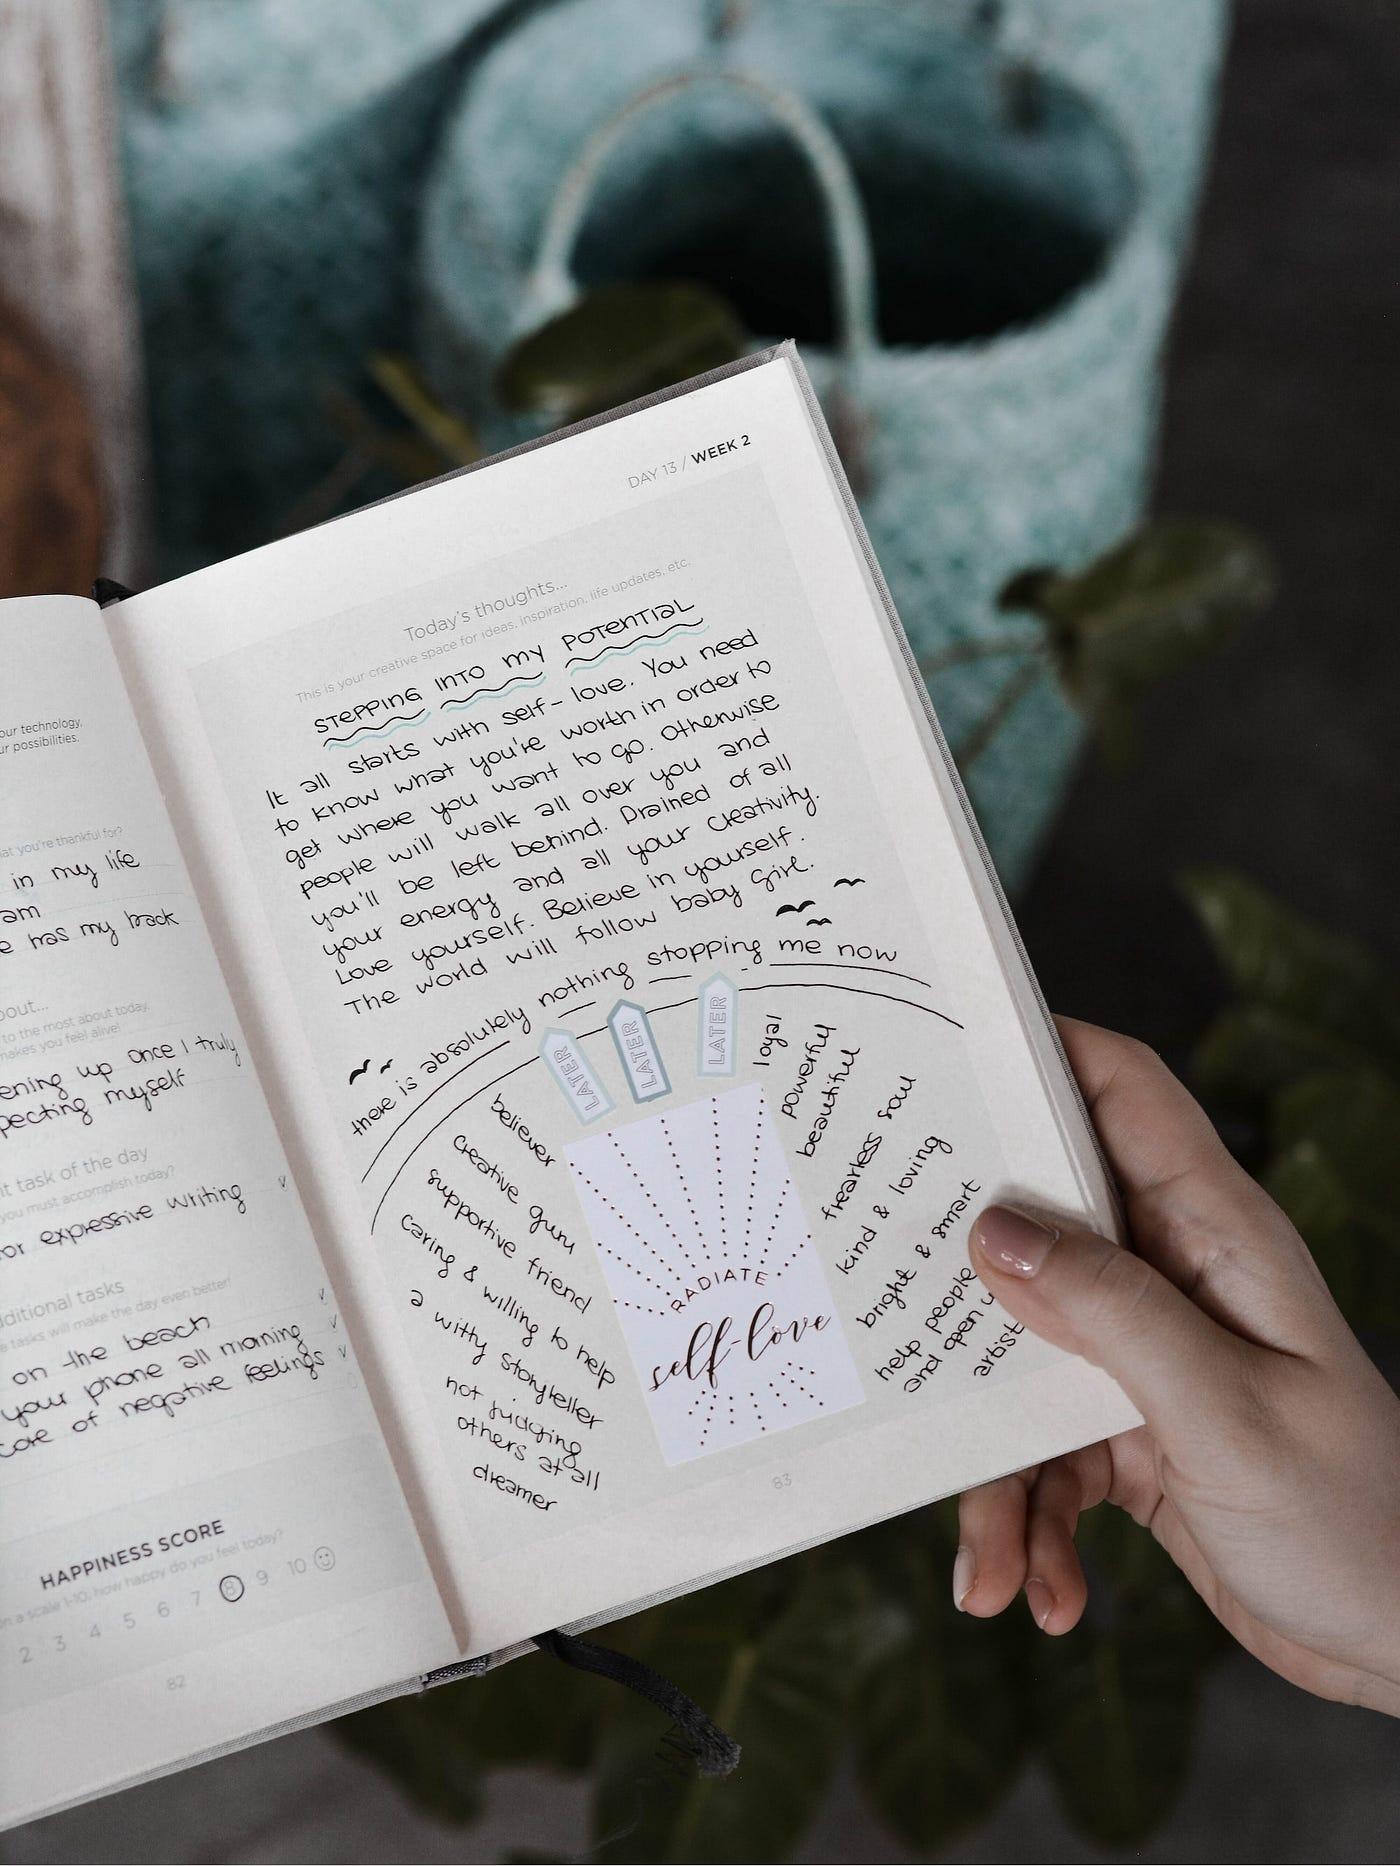 our technology,
ur possibilities.
at you're thankful for?
in my life
am
e has my back
bout...
to the most about today,
makes you feel alive!
ening up once I truly
pecting myself
nt task of the day
you must accomplish today?
or expressive writing
dditional tasks
e tasks will make the day even better!
on the beach
your phone all morning
of negative feelings
HAPPINESS SCORE
on a scale 1-10, how happy do you feel today?
2 3 4 5 6 7 8 9 10
82
DAY 13 / WEEK 2
Today's thoughts...
This is your creative space for ideas, inspiration, life updates, etc.
STEPPING INTO MY POTENTIAL
It all starts with self-love. You need
to know what you're worth in order to
get where you want to go. Otherwise
people will walk all over you and
you'll be left behind. Drained of all
your energy and all your creativity.
Love yourself. Believe in yourself.
The world will follow baby girl.
there is absolutely nothing stopping me now
LATER
LATER
LATER
believer
creative guru
supportive friend
caring & willing to help
a witty storyteller
not judging
others at all
dreamer
RADIATE
self-love
loyal
powerful
beautiful
fearless soul
kind & loving
bright & smart
help people
and open u
artist
83